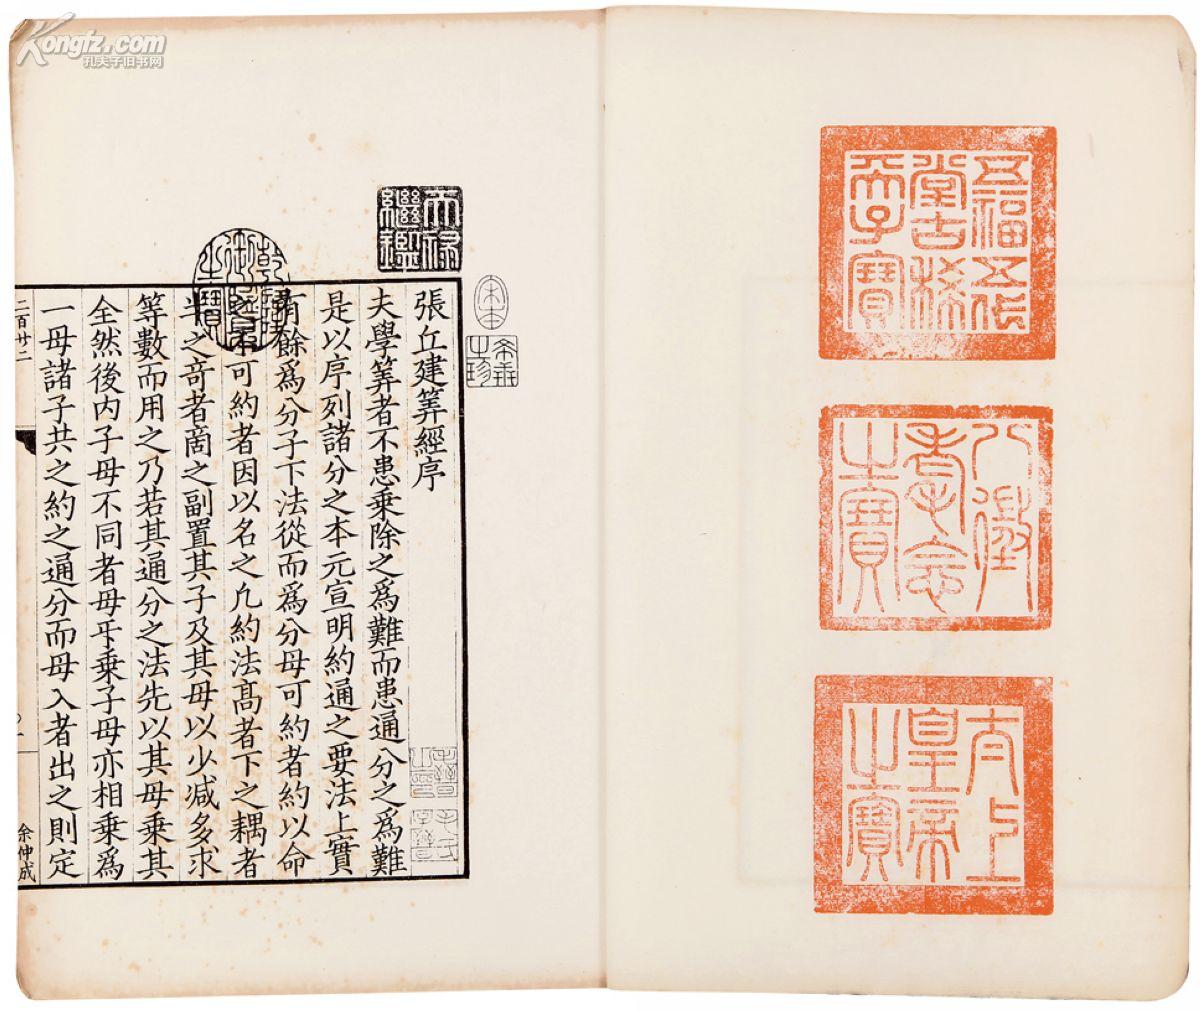 Kongfz.com
孔夫子旧书网
五福五代
堂古稀
天子寶
八徵
耄念
之寶
太上
皇帝
之寶
天祿
繼鑑
乾隆
御覽
之寶
宋本
希世
之珍
張丘建筭經序
夫學筭者不患乗除之爲難而患通分之爲難
是以序列諸分之本元宣明約通之要法上實
有餘爲分子下法從而爲分母可約者約以命
之不可約者因以名之凡約法髙者下之耦者
半之奇者商之副置其子及其母以少减多求
等數而用之乃若其通分之法先以其母乗其
全然後内子母不同者母乗子母亦相乗爲
一母諸子共之約之通分而母入者出之則定
二百廿二
一
余仲成